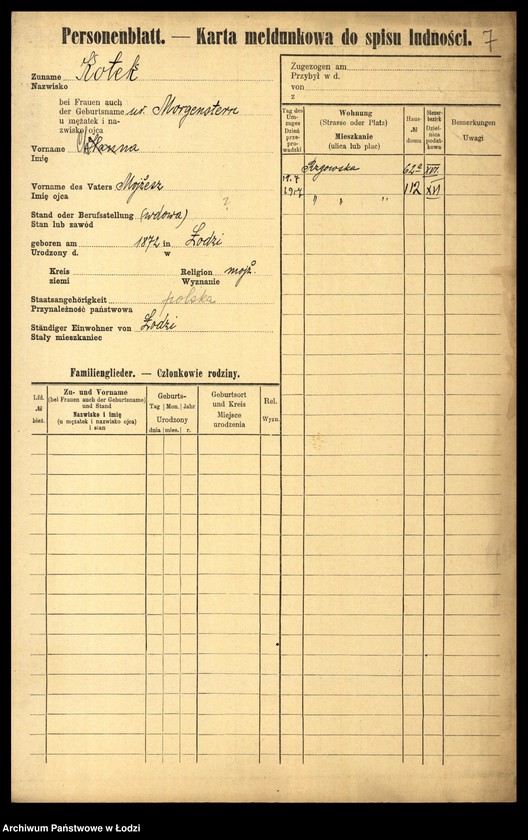 Personenblatt. — Karta meldunkowa do spisu ludności. 7
Zuname Kotek
Nazwisko
bei Frauen auch
der Geburtsname ur. Morgenstern
u mężatek i na-
zwisko ojca
Vorname
Imię
Vorname des Vaters Mojżesz
Imię ojca
Stand oder Berufsstellung (wdowa) ?
Stan lub zawód
geboren am 1872 in Łodzi
Urodzony d. w
Kreis Religion mojż.
ziemi Wyznanie
Staatsangehörigkeit polska
Przynależność państwowa
Ständiger Einwohner von Łodzi
Stały mieszkaniec
Familienglieder. — Członkowie rodziny.
Lfd. № bież.
Zu- und Vorname
(bei Frauen auch der Geburtsname)
und Stand
Nazwisko i imię
(u mężatek i nazwisko ojca)
i stan
Geburts-
Tag Mon. Jahr
Urodzony
dnia mies. r.
Geburtsort
und Kreis
Miejsce
urodzenia
Rel.
Wyzn.
Zugezogen am
Przybył w d.
von
z
Tag des
Um-
zuges
Dzień
prze-
prowadzki
Wohnung
(Strasse oder Platz)
Mieszkanie
(ulica lub plac)
Haus-
№
domu
Steuer-
bezirk
Dziel-
nica
podat-
kowa
Bemerkungen
Uwagi
Rzgowska 62a XVI
19.7
1917 " " " 112 XVI
Archiwum Państwowe w Łodzi